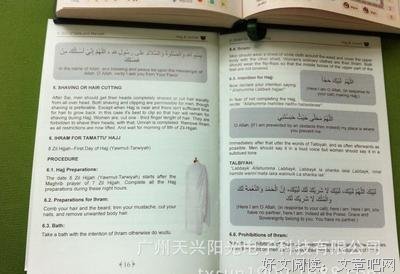 Hajj & Umrah
بسم الله والصلاة والسلام على رسول الله ، اللهم إني أسألك من
فضلك
In the name of Allah, and blessing and peace be upon the messenger of
Allah. O Allah, verily I ask you from Your Favor
5. SHAVING OR HAIR CUTTING
After Sai, men should get their heads completely shaved or cut hair equally
from all over head. Both shaving and clipping are permissible for men, though
shaving is preferable. Except when Hajj is near and there isn't sufficient time
for hair to grow back. In this case its best to clip so that hair will remain for
shaving during Hajj. Women are, cut one - third finger length of hair. They are
forbidden to shave their heads, with that, Umrah is completed. Remove Ihram,
as all restrictions are now lifted. And wait for morning of 8th of Zil-Hijjah.
6. IHRAM FOR TAMATTU' HAJJ
8 Zil Hijjah-First Day of Hajj (Yawmut-Tarwiyah)
PROCEDURE
6.1. Hajj Preparations:
The date 8 Zil Hijjah (Yawmut-Tarwiyah) starts after the
Maghrib prayer of 7 Zil Hijjah. Complete all the Hajj
preparations during these night hours.
6.2. Preparations for Ihram:
Comb your hair and the beard, trim your mustache, cut your
nails, and remove unwanted body hair.
6.3. Bath:
Take a bath with the intention of Ihram otherwise do wudu.
16
Hajj & Umrah
6.4. Ihram:
Men should wear a sheet of white cloth around the waist and cover the upper
body with the other sheet. Women's ordinary clothes are their Ihram. Both
should wear the flip-flops so that the middle bones of the upper part of the
feet are not covered.
6.5. Intention for Hajj:
Now declare your intention saying
"Allahumma Labbaik hajjan"
اللهم لبيك حجا
(Here I am O Allah, in response to
your call) making Hajj.)
In fear of not completing the Hajj,
recite: "Allahumma mahilli haithu habistanee"
اللهم محلي حيث حبستني
O Allah, (If I am prevented by an obstacle then indeed my place is
where you prevent me.
Immediately after that utter the words of Talbiyah, and as often afterwards as
possible. Men should say it in a loud voice but women should say it in a
subdued tone.
TALBIYAH:
لبيك اللهم لبيك، لبيك لا شريك لك لبيك، إن الحمد والنعمة لك
(Here I am O Allah, (in response to your call), here I am. Here I am, you
have no partner, here I am. Indeed all the Praise, Grace and
Sovereignty belong to You. You have no partner.)
6.6. Prohibitions of Ihram:
广州天兴阳光电子科技有限公司
好文阅读，文章吧网